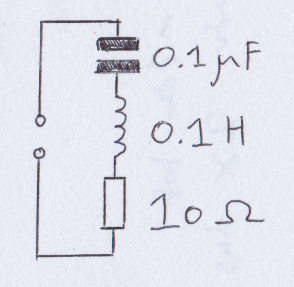 0.1 μF
0.1 H
10 Ω